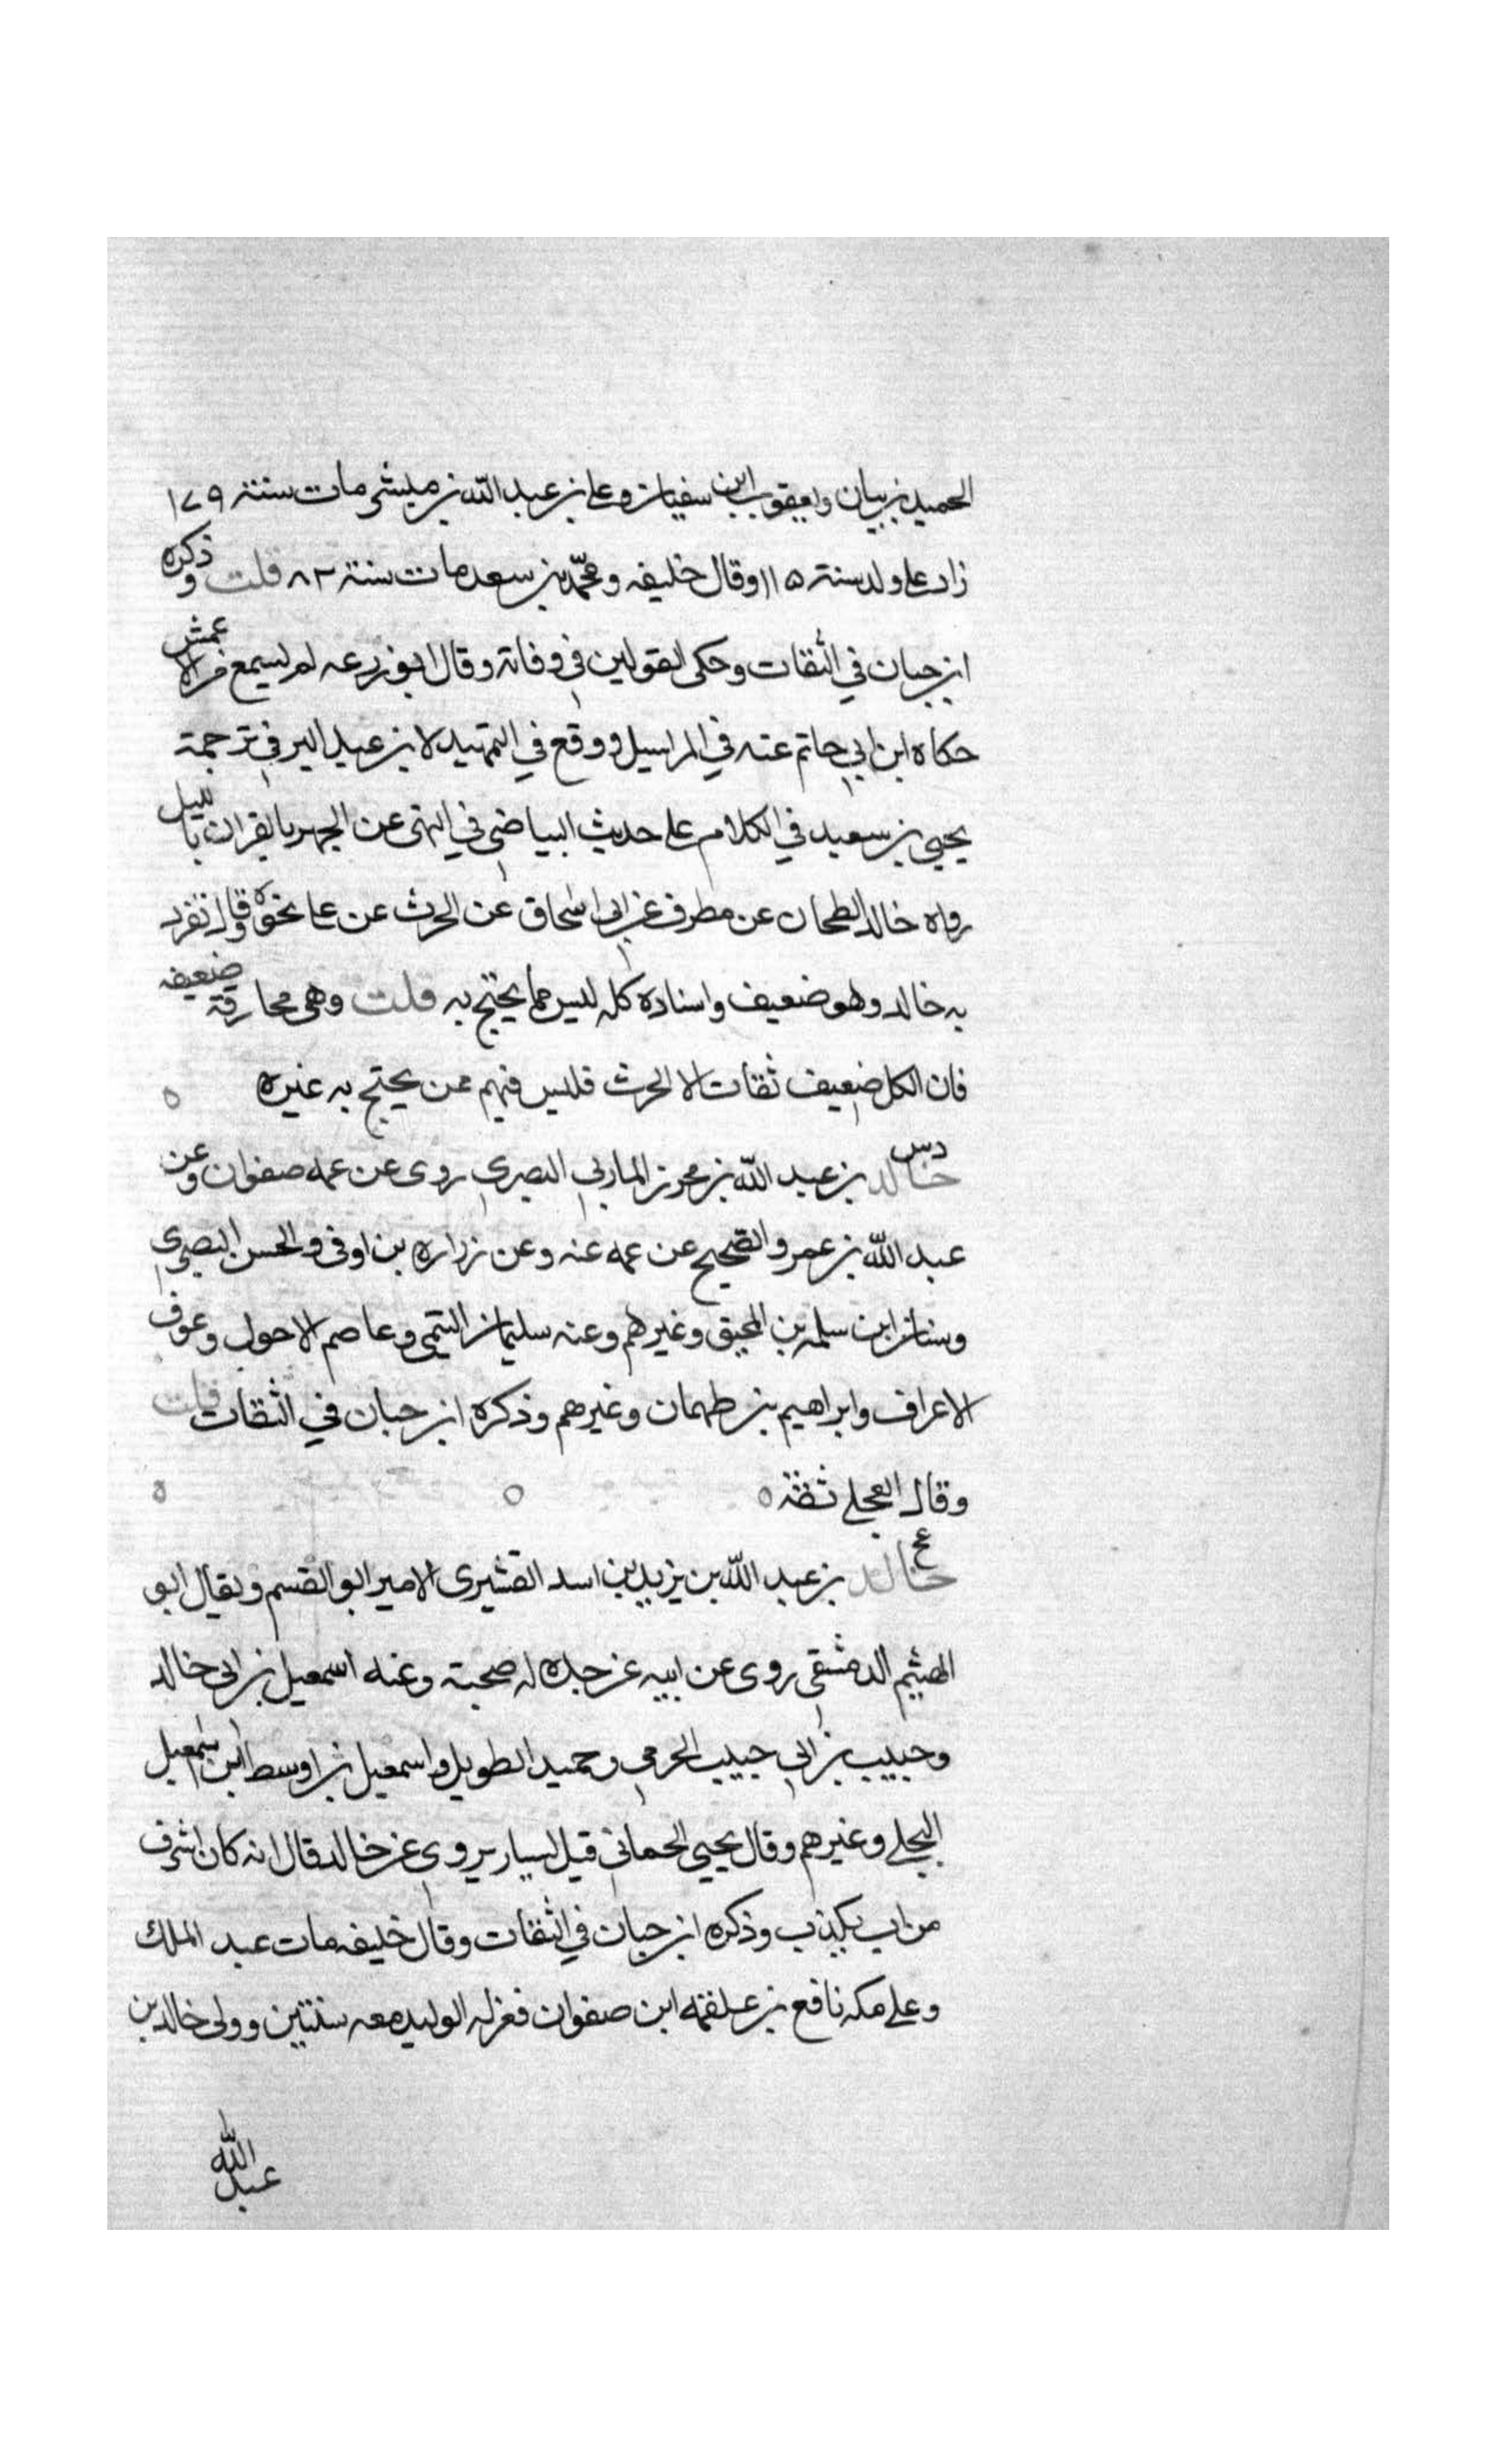 الحميد بن بيان ويعقوب ابن سفيان وعلى بن عبد الله بن مبشر مات سنة ١٧٩
زاد على ولد سنة ١١٥ وقال خليفه ومحمد بن سعد مات سنة ٨٢ قلت وذكره
ابن حبان في الثقات وحكى القولين في وفاته وقال ابو زرعه لم يسمع من الاعمش
حكاه ابن ابي حاتم عنه في المراسيل ووقع في التمهيد لابن عبد البر في ترجمة
يحيى بن سعيد في الكلام على حديث البياضى في النهى عن الجهر بالقران بالليل
رواه خالد الطحان عن مطرف عن ابي اسحاق عن الحرث عن على نحوه وقال تفرد
به خالد وهو ضعيف واسناده كله ليس مما يحتج به قلت وهى مجازفة ضعيفه
فان الكل ضعيف ثقات الا الحرث فليس فيهم ممن يحتج به غيره
دس
خالد بن عبد الله بن محرز المازني البصري روى عن عمه صفوان وعن
عبد الله بن عمر والصحيح عن عمه عنه وعن زراره بن اوفى والحسن البصري
وسنان ابن سلمه بن المحبق وغيرهم وعنه سليمان التيمي وعاصم الاحول وعوف
الاعراف وابراهيم بن طهمان وغيرهم وذكره ابن حبان في الثقات قلت
وقال العجلي ثقة
عخ
خالد بن عبد الله بن يزيد بن اسد القشيرى الامير ابو القسم ويقال ابو
الهيثم الدمشقي روى عن ابيه عن جده له صحبة وعنه اسمعيل بن ابي خالد
وحبيب بن ابي حبيب الجرمي وحميد الطويل واسمعيل بن اوسط ابن اسمعيل
البجلي وغيرهم وقال يحيى الحماني قيل لسيار يروى عن خالد قال انه كان اشرف
من اب يكذب وذكره ابن حبان في الثقات وقال خليفه مات عبد الملك
وعلى مكه نافع بن علقمه ابن صفوان فعزله الوليد معه سنتين وولى خالد بن
عبد الله